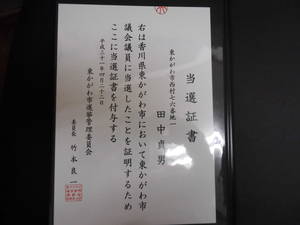 当選証書
東かがわ市西村七六番地一
田中貞男
右は香川県東かがわ市において東かがわ市
議会議員に当選したことを証明するため
ここに当選証書を付与する
平成三十一年四月二十二日
東かがわ市選挙管理委員会
委員長 竹本良一